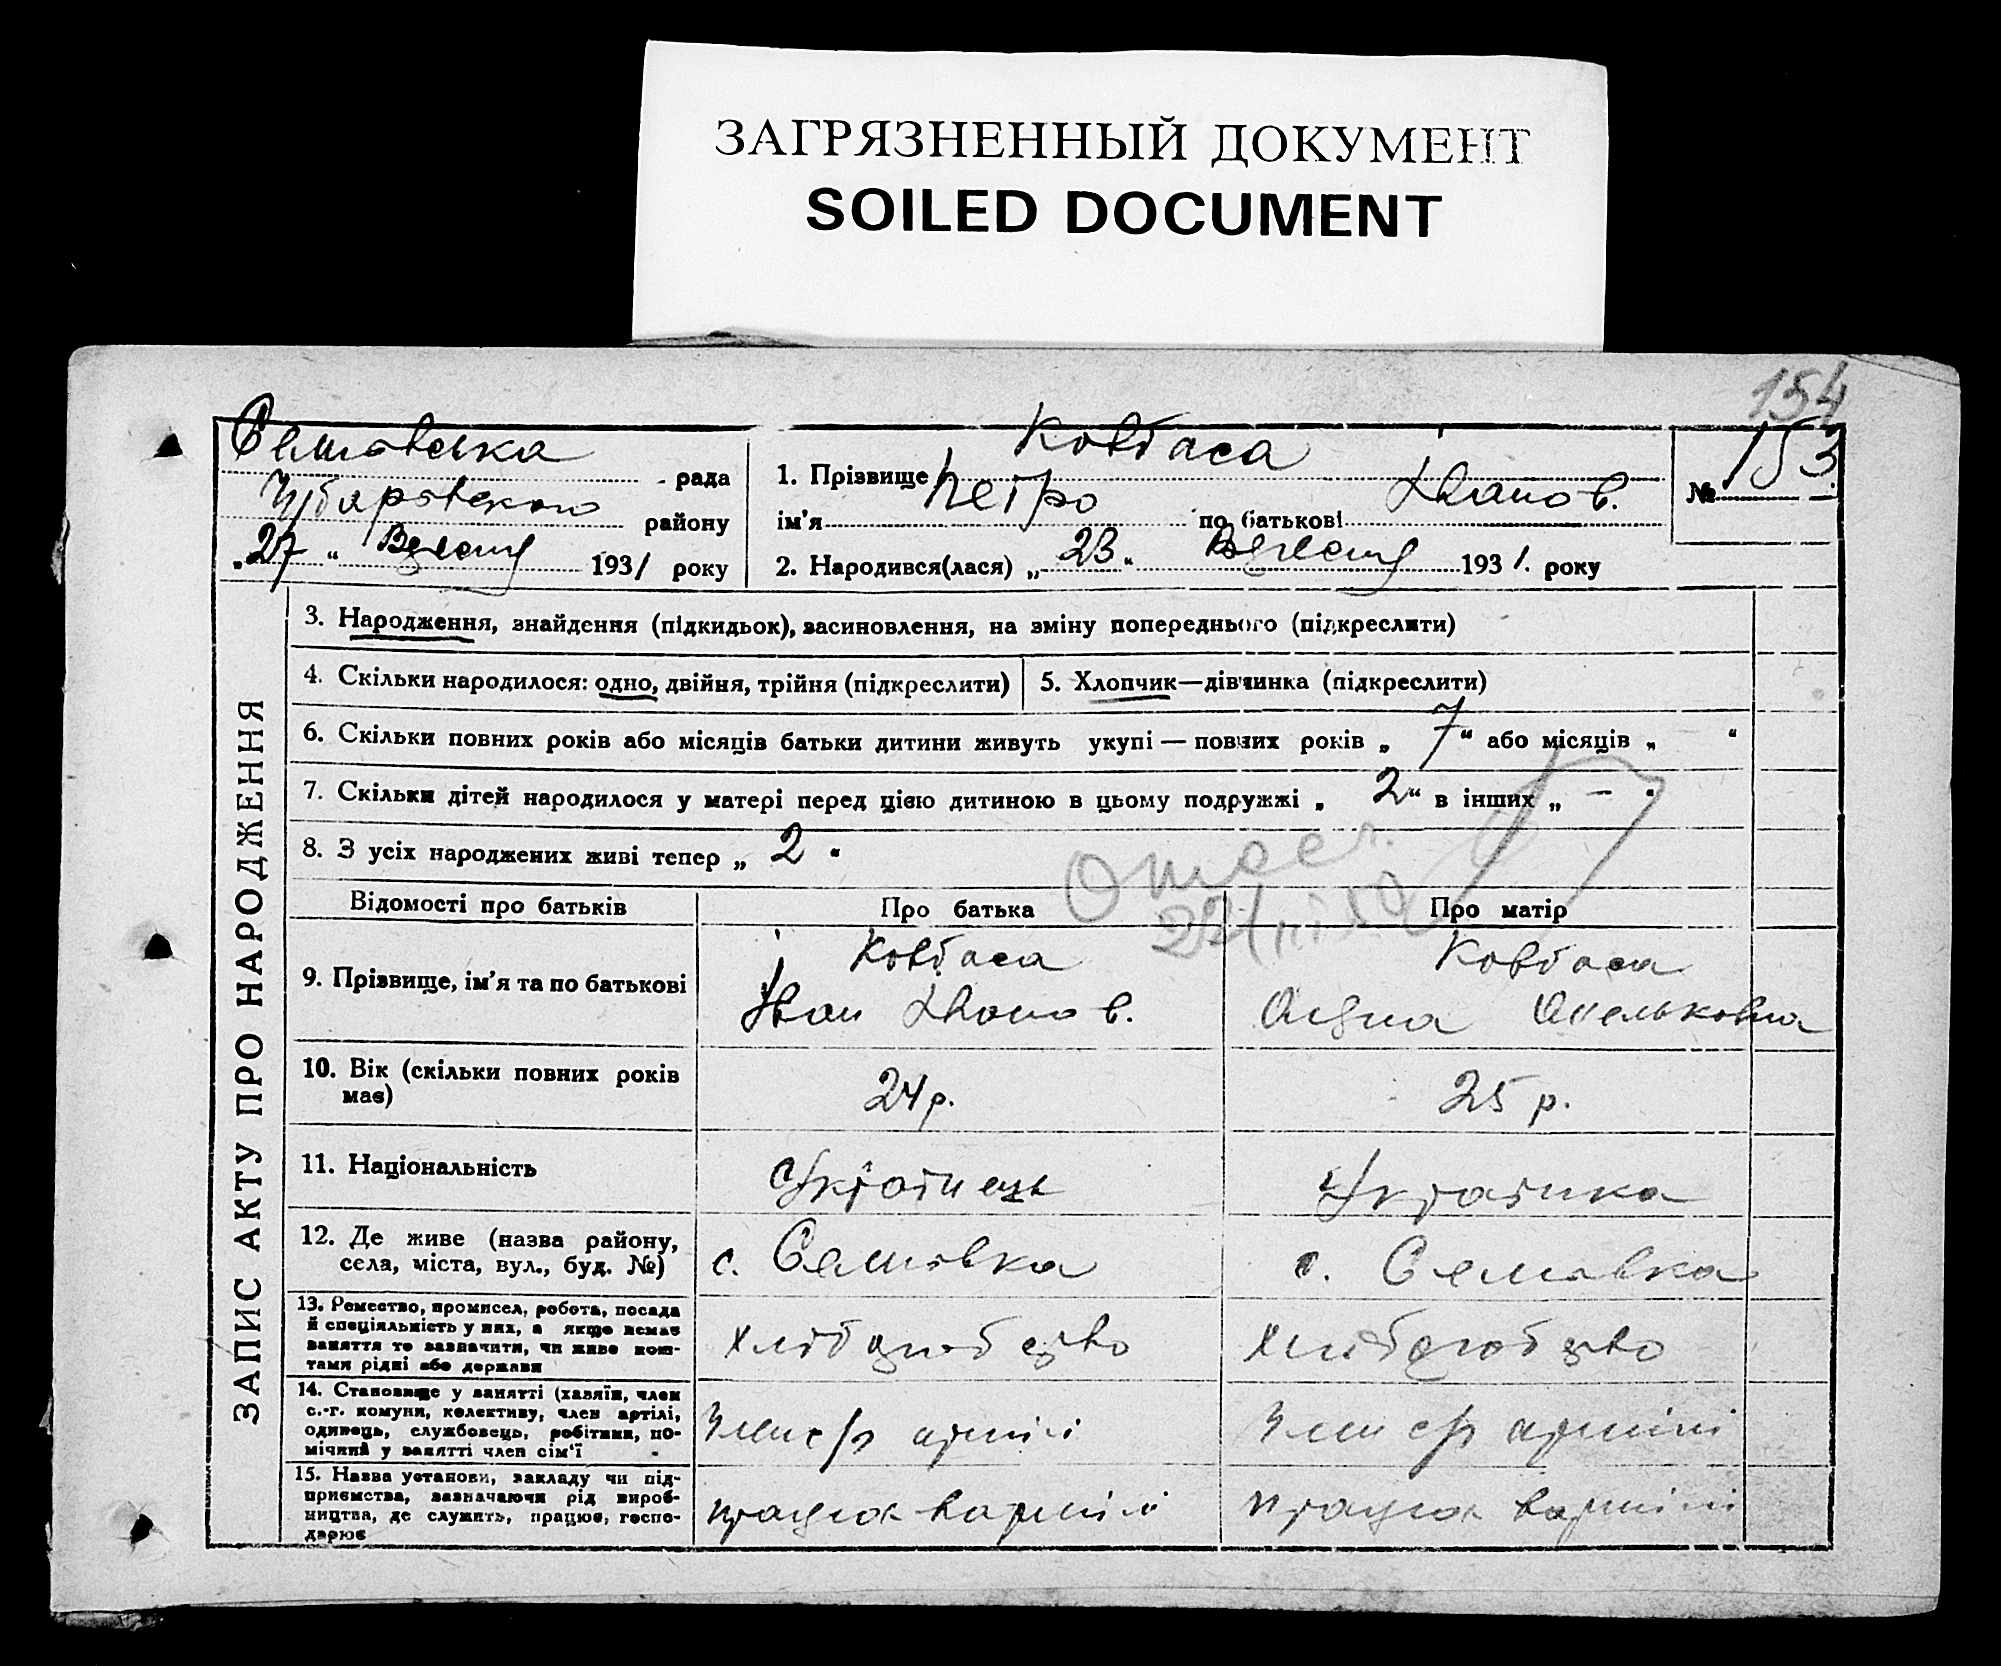 ЗАГРЯЗНЕННЫЙ ДОКУМЕНТ
SOILED DOCUMENT
154
Семовська рада
району
„27“ Вересня 1931 року
1. Прізвище Ковбаса
ім'я Петро по батькові Іванов.
2. Народився(лася) „23“ Вересня 1931. року
№ 153
ЗАПИС АКТУ ПРО НАРОДЖЕННЯ
3. Народження, знайдення (підкидьок), засиновлення, на зміну попереднього (підкреслити)
4. Скільки народилося: одно, двійня, трійня (підкреслити)
5. Хлопчик—дівчинка (підкреслити)
6. Скільки повних років або місяців батьки дитини живуть укупі — повних років „ 7 “ або місяців „ “
7. Скільки дітей народилося у матері перед цією дитиною в цьому подружжі „ 2 “ в інших „ – “
8. З усіх народжених живі тепер „ 2 “
Відомості про батьків
Про батька
Про матір
9. Прізвище, ім'я та по батькові
Ковбаса
Іван Іванов.
Ковбаса
Омельковна
10. Вік (скільки повних років
має)
24 р.
25 р.
11. Національність
Українець
Українка
12. Де живе (назва району,
села, міста, вул., буд. №)
с. Семовка
с. Семовка
13. Ремество, промисел, робота, посада
й спеціяльність у них, а якщо немає
заняття то зазначити, чи живе кош-
тами рідні або держави
Хліборобство
Хліборобство
14. Становище у занятті (хазяїн, член
с.-г. комуни, колективу, член артілі,
одинець, службовець, робітник, по-
мічний у занятті член сім'ї
Член с/г артілі
Член с/г артілі
15. Назва установи, закладу чи під-
приємства, зазначаючи рід вироб-
ництва, де служить, працює, госпо-
дарює
працює в артілі
працює в артілі